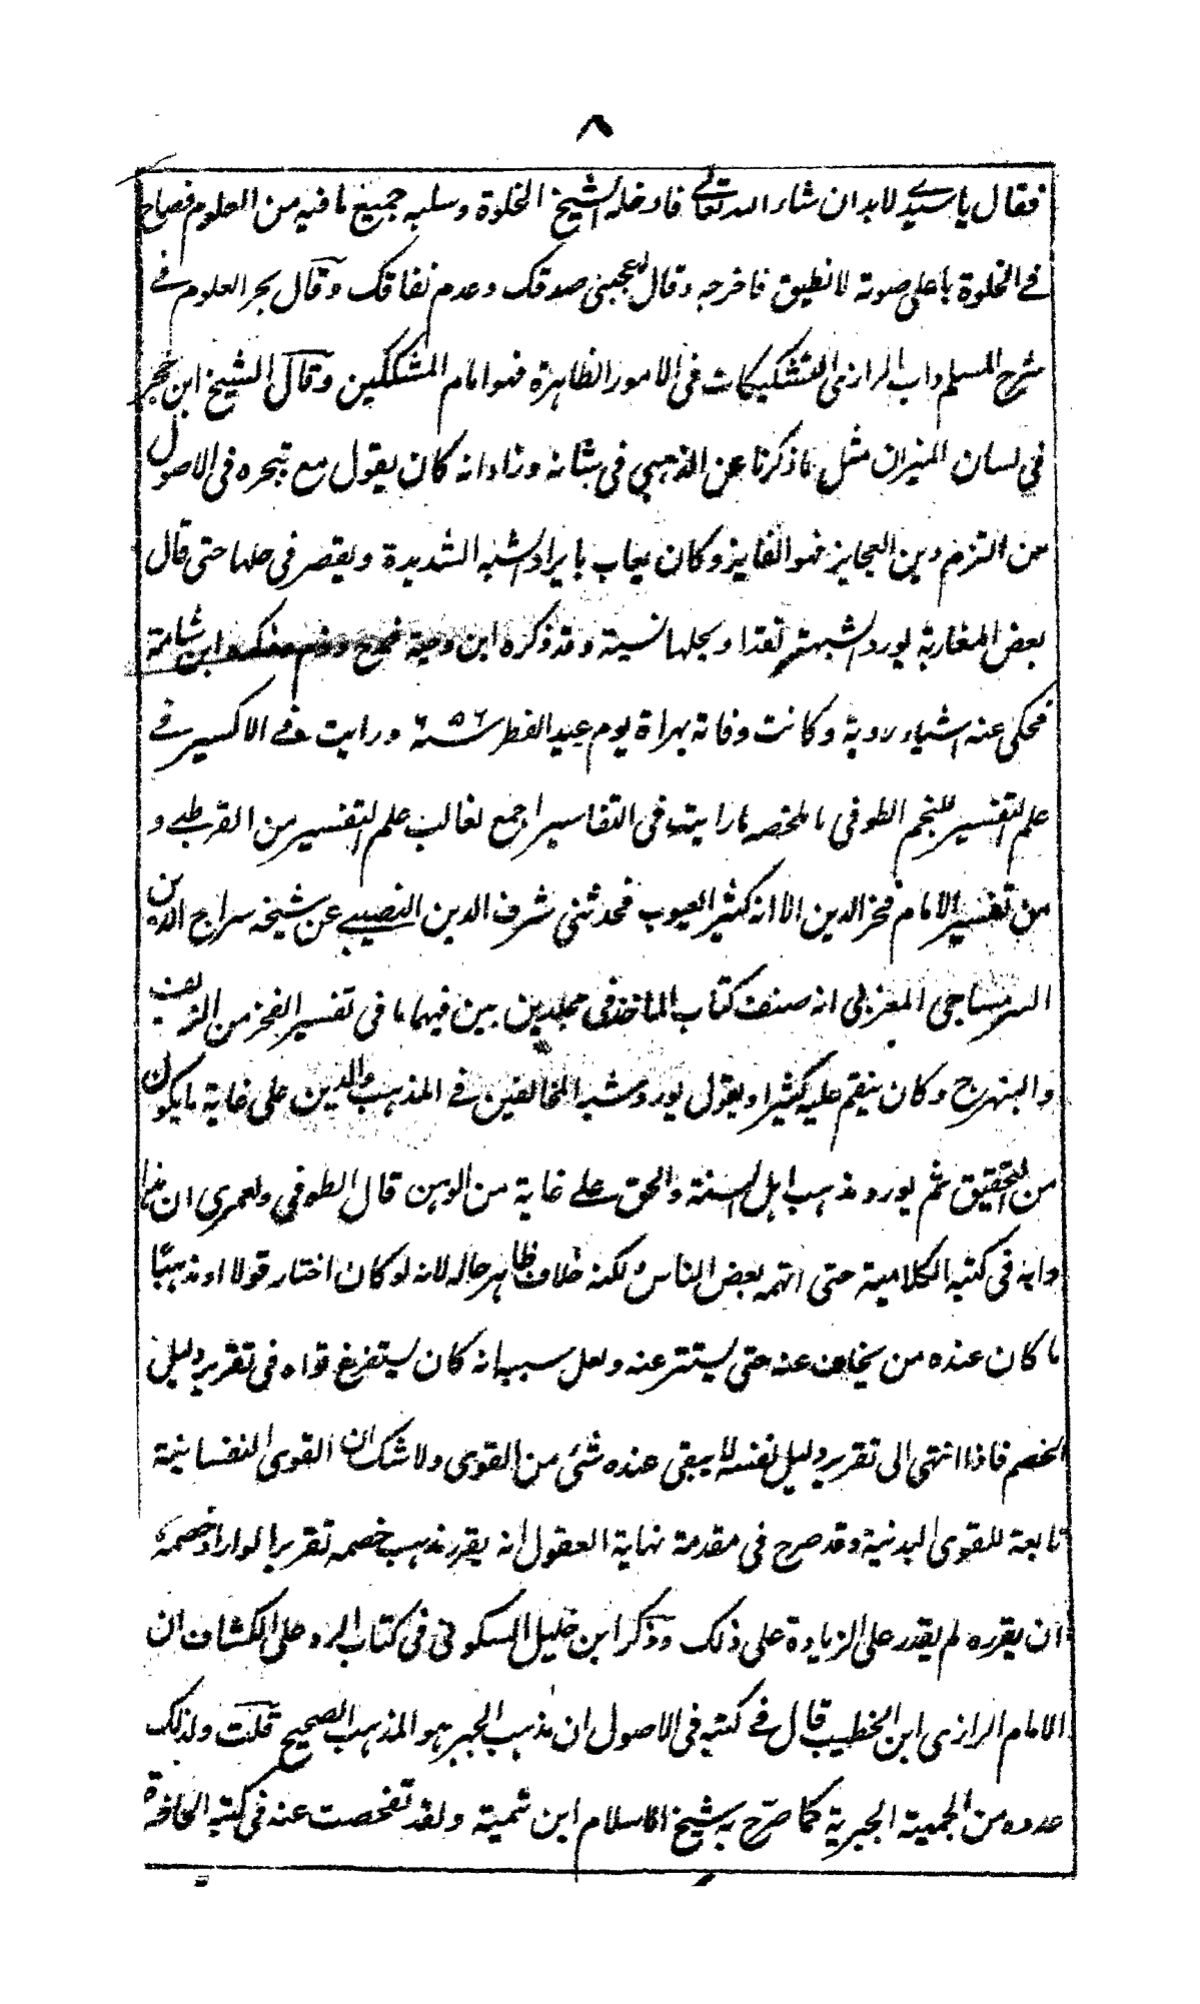 ٨
فقال يا سيدي لابد ان شاء الله تعالى فادخله الشيخ الخلوة وسلبه جميع ما فيه من العلوم فصاح
في الخلوة باعلى صوته لا نطيق فاخرجه وقال اعجبني صدقك وعدم نفاقك وقال بحر العلوم في
شرح المسلم داب الرازى التشكيكات فى الامور الظاهرة فهو امام المشككين وقال الشيخ ابن حجر
في لسان الميزان مثل ما ذكرنا عن الذهبي في شانه وزاد انه كان يقول مع تبحره في الاصول
من التزم دين العجايز فهو الفايز وكان يعاب بايراد الشبه الشديدة ويقصر فى حلها حتى قال
بعض المغاربة يورد الشبهة نقدا ويحلها نسية وقد ذكره ابن دحية فمدح وذم وابن شامة
فحكى عنه اشياء ردية وكانت وفاته بهراة يوم عيد الفطر سنة ٦٥٦ ورايت في الاكسير في
علم التفسير للنجم الطوفى ما ملخصه ما رايت فى التفاسير اجمع لغالب علم التفسير من القرطبے و
من تفسير الامام فخر الدين الا انه كثير العيوب فحدثنى شرف الدين النصيبے عن شيخه سراج الدين
السرمساحى المغربى انه صنف كتاب الماخذ فى مجلدين بين فيهما ما فى تفسير الفخر من الزيف
والبهرج وكان ينقم عليه كثيرا ويقول يورد شبه المخالفين في المذهب والدين على غاية ما يكون
من التحقيق ثم يورد مذهب اهل السنة والحق على غاية من الوهن قال الطوفي ولعمري ان هذا
دابه فى كتبه الكلامية حتى اتهمه بعض الناس ولكنه خلاف ظاهر حاله لانه لو كان اختار قولا او مذهبًا
ما كان عنده من يخاف عنه حتى يستتر عنه ولعل سببه انه كان يستفرغ قواه فى تقرير دليل
الخصم فاذا انتهى الى تقرير دليل نفسه لا يبقى عنده شئ من القوى ولا شك ان القوى النفسانية
تابعة للقوى البدنية وقد صرح فى مقدمة نهاية العقول انه يقرر مذهب خصمه تقريرا لو اراد خصمه
ان يقرره لم يقدر على الزيادة على ذلك وذكر ابن خليل السكونى فى كتاب الرد على الكشاف ان
الامام الرازى ابن الخطيب قال في كتبه فى الاصول ان مذهب الجبر هو المذهب الصحيح قلت ولذلك
عدوه من الجهمية الجبرية كما صرّح به شيخ الاسلام ابن تيمية ولقد تفحصت عنه فى كتبه الحاضرة